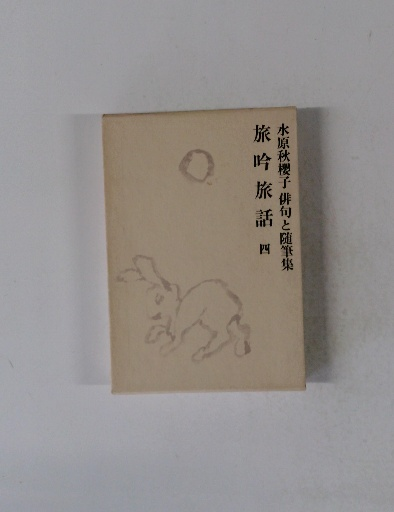 水原秋櫻子 俳句と随筆集
旅吟旅話 四